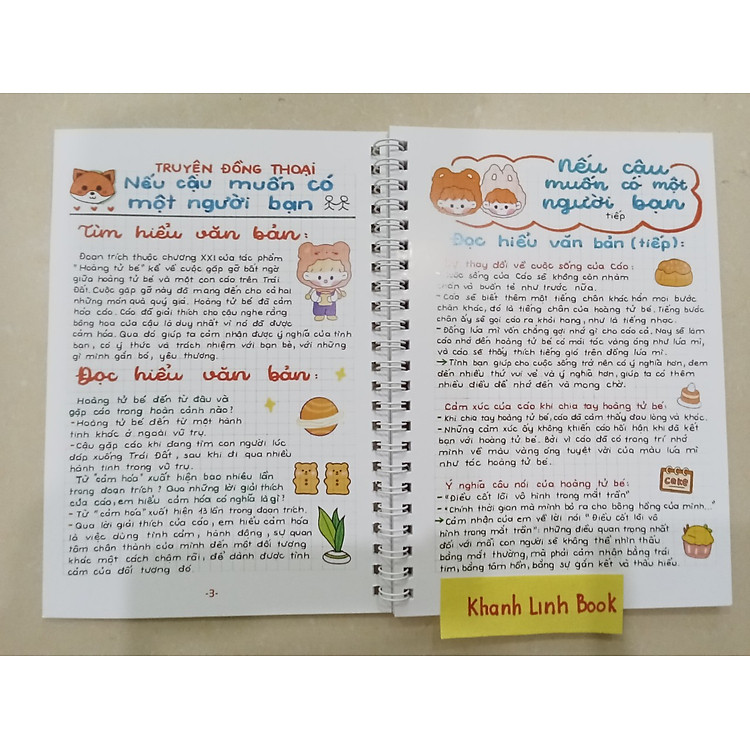 TRUYỆN ĐỒNG THOẠI
Nếu cậu muốn có
một người bạn
Tìm hiểu văn bản:
Đoạn trích thuộc chương XXI của tác phẩm
"Hoàng tử bé" kể về cuộc gặp gỡ bất ngờ
giữa hoàng tử bé và một con cáo trên Trái
Đất. Cuộc gặp gỡ này đã mang đến cho cả hai
những món quà quý giá. Hoàng tử bé đã cảm
hóa cáo. Cáo đã giải thích cho cậu nghe rằng
bông hoa của cậu là duy nhất vì nó đã được
cảm hóa. Qua đó giúp ta cảm nhận được ý nghĩa của tình
bạn, có ý thức và trách nhiệm với bạn bè, với những
gì mình gắn bó, yêu thương.
Đọc hiểu văn bản:
Hoàng tử bé đến từ đâu và
gặp cáo trong hoàn cảnh nào?
-Hoàng tử bé đến từ một hành
tinh khác ở ngoài vũ trụ.
-Cậu gặp cáo khi đang tìm con người lúc
đáp xuống Trái Đất, sau khi đi qua nhiều
hành tinh trong vũ trụ.
Từ "cảm hóa" xuất hiện bao nhiêu lần
trong đoạn trích? Qua những lời giải thích
của cáo, em hiểu cảm hóa có nghĩa là gì?
-Từ "cảm hóa" xuất hiện 13 lần trong đoạn trích.
-Qua lời giải thích của cáo, em hiểu cảm hóa
là việc dùng tình cảm, hành động, sự quan
tâm chân thành của mình đến một đối tượng
khác một cách chậm rãi, để dành được tình
cảm của đối tượng đó
-3-
Nếu cậu
muốn có một
người bạn
tiếp
Đọc hiểu văn bản (tiếp):
thay đổi về cuộc sống của Cáo:
sống của Cáo sẽ không còn nhàm
chán và buồn tẻ như trước nữa.
-Cáo sẽ biết thêm một tiếng chân khác hẳn mọi bước
chân khác, đó là tiếng chân của hoàng tử bé. Tiếng bước
chân ấy sẽ gọi cáo ra khỏi hang, như là tiếng nhạc.
-Đồng lúa mì vốn chẳng gợi nhớ gì cho cáo cả, Nay sẽ làm
cáo nhớ đến hoàng tử bé có mái tóc vàng óng như lúa mì,
và cáo sẽ thấy thích tiếng gió trên đồng lúa mì.
→Tình bạn giúp cho cuộc sống trở nên có ý nghĩa hơn, đem
đến nhiều thứ vui vẻ và ý nghĩa hơn, giúp ta có thêm
nhiều điều để nhớ đến và mong chờ.
Cảm xúc của cáo khi chia tay hoàng tử bé:
-Khi chia tay hoàng tử bé, cáo đã cảm thấy đau lòng và khóc.
-Những cảm xúc ấy không khiến cáo hối hận khi đã kết
bạn với hoàng tử bé. Bởi vì cáo đã có trong trí nhớ
mình về màu vàng óng tuyệt vời của màu lúa mì
như tóc hoàng tử bé.
Ý nghĩa câu nói của hoàng tử bé:
-"Điều cốt lõi vô hình trong mắt trần"
-"Chính thời gian mà mình bỏ ra cho bông hồng của mình..."
→Cảm nhận của em về lời nói "Điều cốt lõi vô
hình trong mắt trần": những điều quan trọng nhất
đối với mỗi con người sẽ không thể nhìn thấu
bằng mắt thường, mà phải cảm nhận bằng trái
tim, bằng tâm hồn, bằng sự gắn kết và thấu hiểu.
cake
Khanh Linh Book